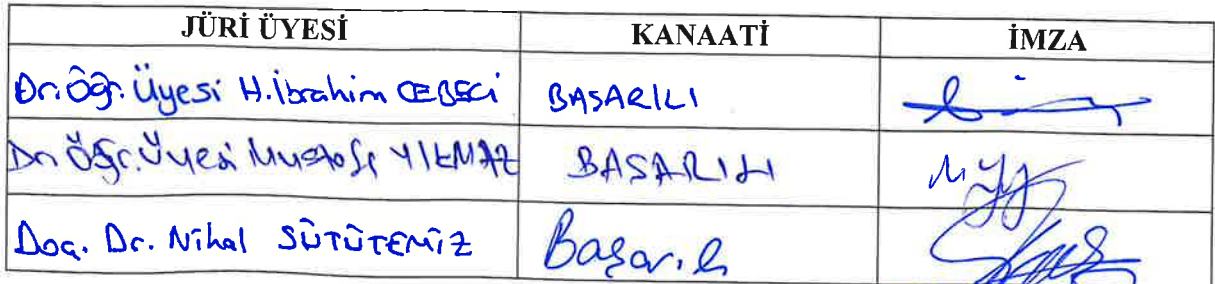 JÜRİ ÜYESİ KANAATİ İMZA
Dr. Öğr. Üyesi H. İbrahim CEBECİ BAŞARILI
Dr. Öğr. Üyesi Mustafa YILMAZ BAŞARILI
Doç. Dr. Nihal SÜTÜTEMİZ Başarılı